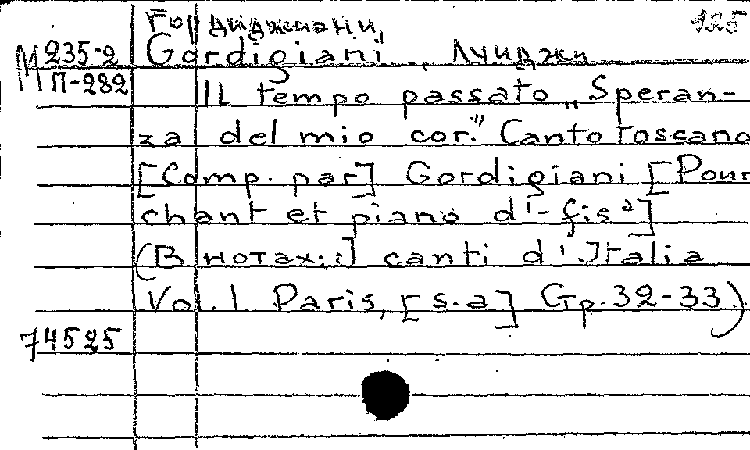 Гордиджиани, 125
М 235-2 Gordigiani, Луиджи
П-282
Il tempo passato „Speran-
za del mio cor." Canto toscano
[Comp. par] Gordigiani [Pour
chant et piano d'-fis²]
(В нотах:] canti d'Italia
Vol. 1 Paris, [s.a] Ср. 32-33)
74525